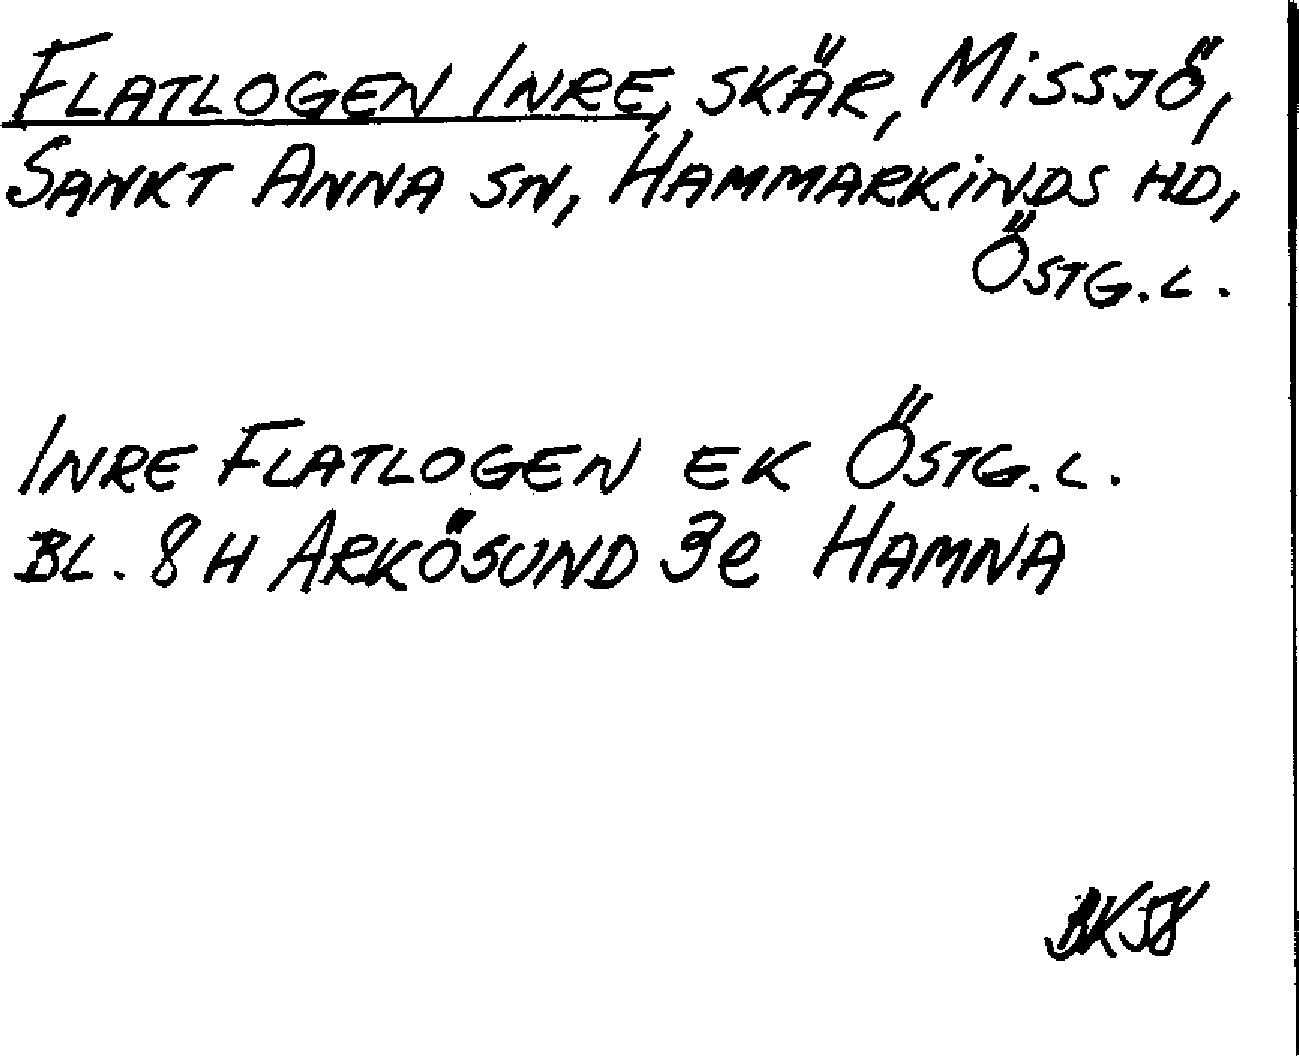 FLATLOGEN INRE, SKÄR, MISSJÖ,
SANKT ANNA SN, HAMMARKINDS HD,
ÖSTG.L.
INRE FLATLOGEN EK ÖSTG.L.
BL. 8H ARKÖSUND 3e HAMNA